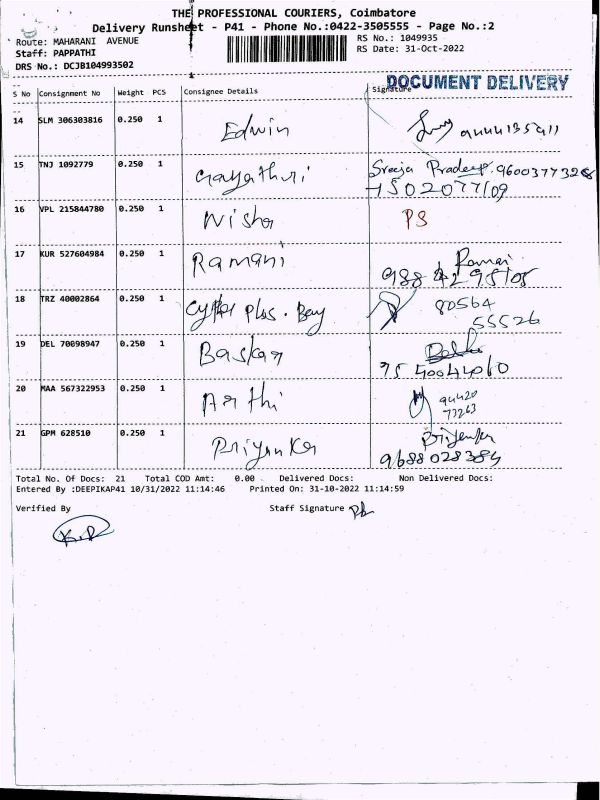 THE PROFESSIONAL COURIERS, Coimbatore
Delivery Runsheet - P41 - Phone No.:0422-3505555 - Page No.:2
Route: MAHARANI AVENUE
RS No.: 1049935
Staff: PAPPATHI
RS Date: 31-Oct-2022
DRS No.: DCJB104993502
DOCUMENT DELIVERY
S No Consignment No Weight PCS Consignee Details Signature
14 SLM 306303816 0.250 1 Edwin
15 TNJ 1092779 0.250 1 Gayathiri Sreeja Pradeep. 9600377326
16 VPL 215844780 0.250 1 Nisha PS
17 KUR 527604984 0.250 1 Ramani Ramani
988 42 95105
18 TRZ 40002864 0.250 1 Plus. Bay 80564
55526
19 DEL 70098947 0.250 1 Baskar
75 40044060
20 MAA 567322953 0.250 1 Arthi 94420
73263
21 GPM 628510 0.250 1 Priyanka Priyanka
9688028384
Total No. Of Docs: 21 Total COD Amt: 0.00 Delivered Docs: Non Delivered Docs:
Entered By :DEEPIKAP41 10/31/2022 11:14:46 Printed On: 31-10-2022 11:14:59
Verified By Staff Signature